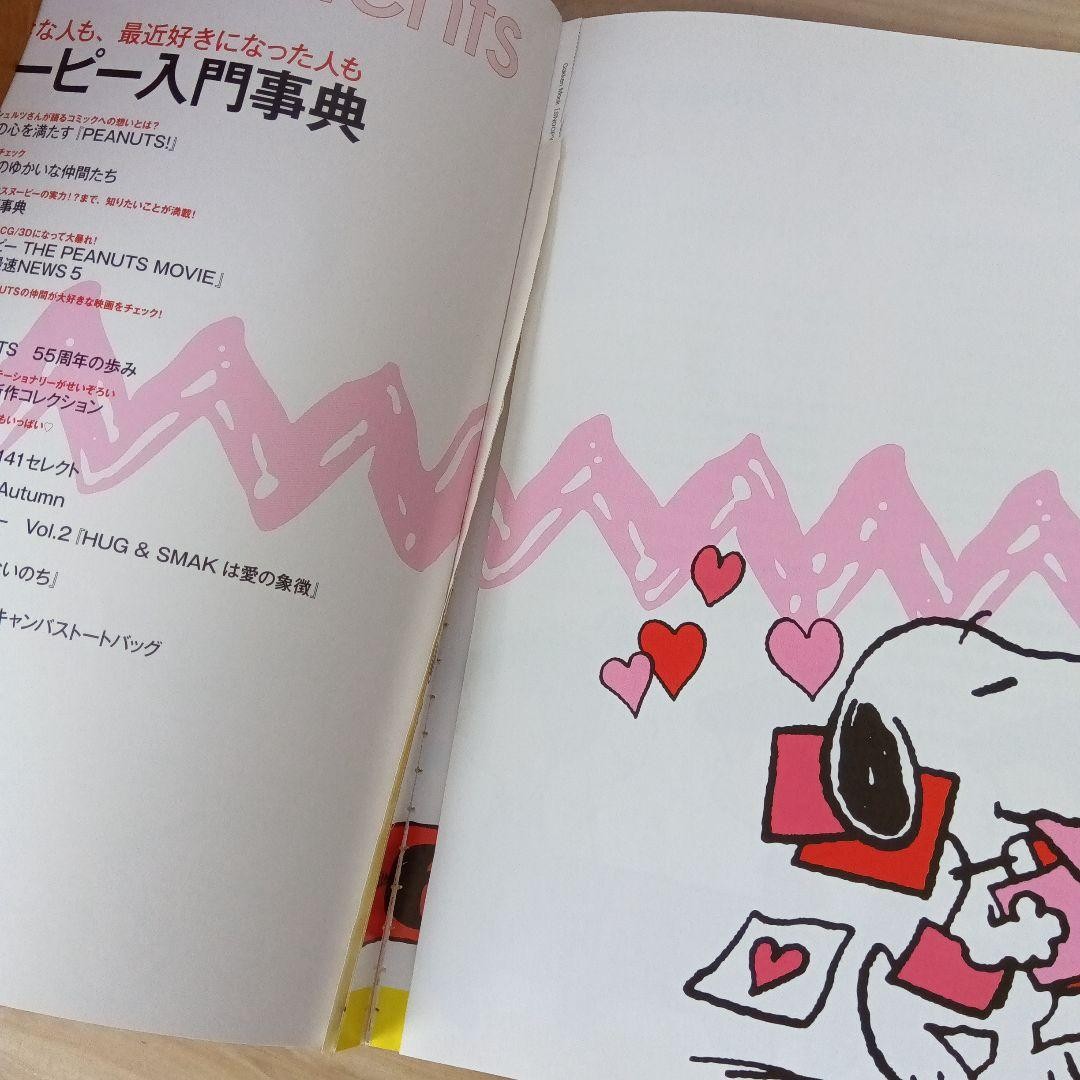 ents
な人も、最近好きになった人も
ーピー入門事典
シュルツさんが語るコミックへの想いとは?
の心を満たす『PEANUTS!』
チェック
のゆかいな仲間たち
スヌーピーの実力!?まで、知りたいことが満載!
事典
CG/3Dになって大暴れ!
ピー THE PEANUTS MOVIE』
速NEWS 5
UTSの仲間が大好きな映画をチェック!
TS 55周年の歩み
テーショナリーがせいぞろい
新作コレクション
もいっぱい♡
141セレクト
Autumn
ー Vol.2『HUG & SMAK は愛の象徴』
いのち』
キャンバストートバッグ
Gakken Mook